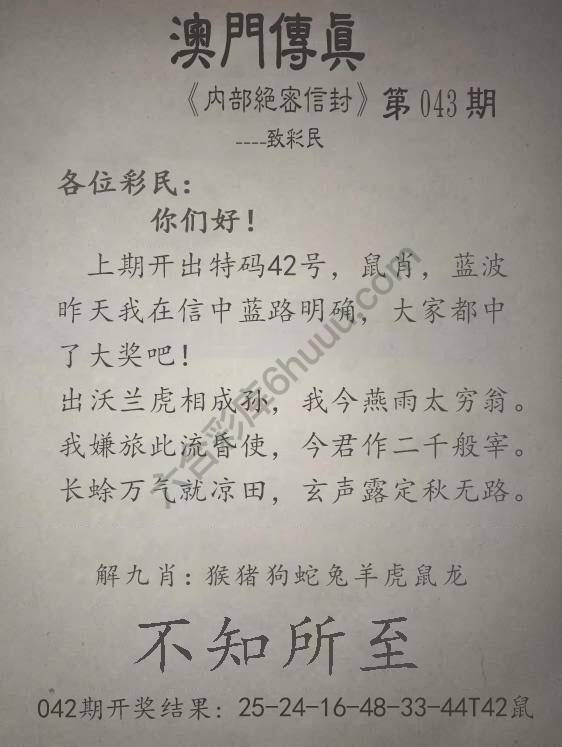 澳門傳眞
《内部絕密信封》第043期
----致彩民
各位彩民：
你们好！
上期开出特码42号，鼠肖，蓝波
昨天我在信中蓝路明确，大家都中
了大奖吧！
出沃兰虎相成孙，我今燕雨太穷翁。
我嫌旅此流昏使，今君作二千般宰。
长蜍万气就凉田，玄声露定秋无路。
解九肖：猴猪狗蛇兔羊虎鼠龙
不知所至
042期开奖结果：25-24-16-48-33-44T42鼠
六合彩库6huuu.com